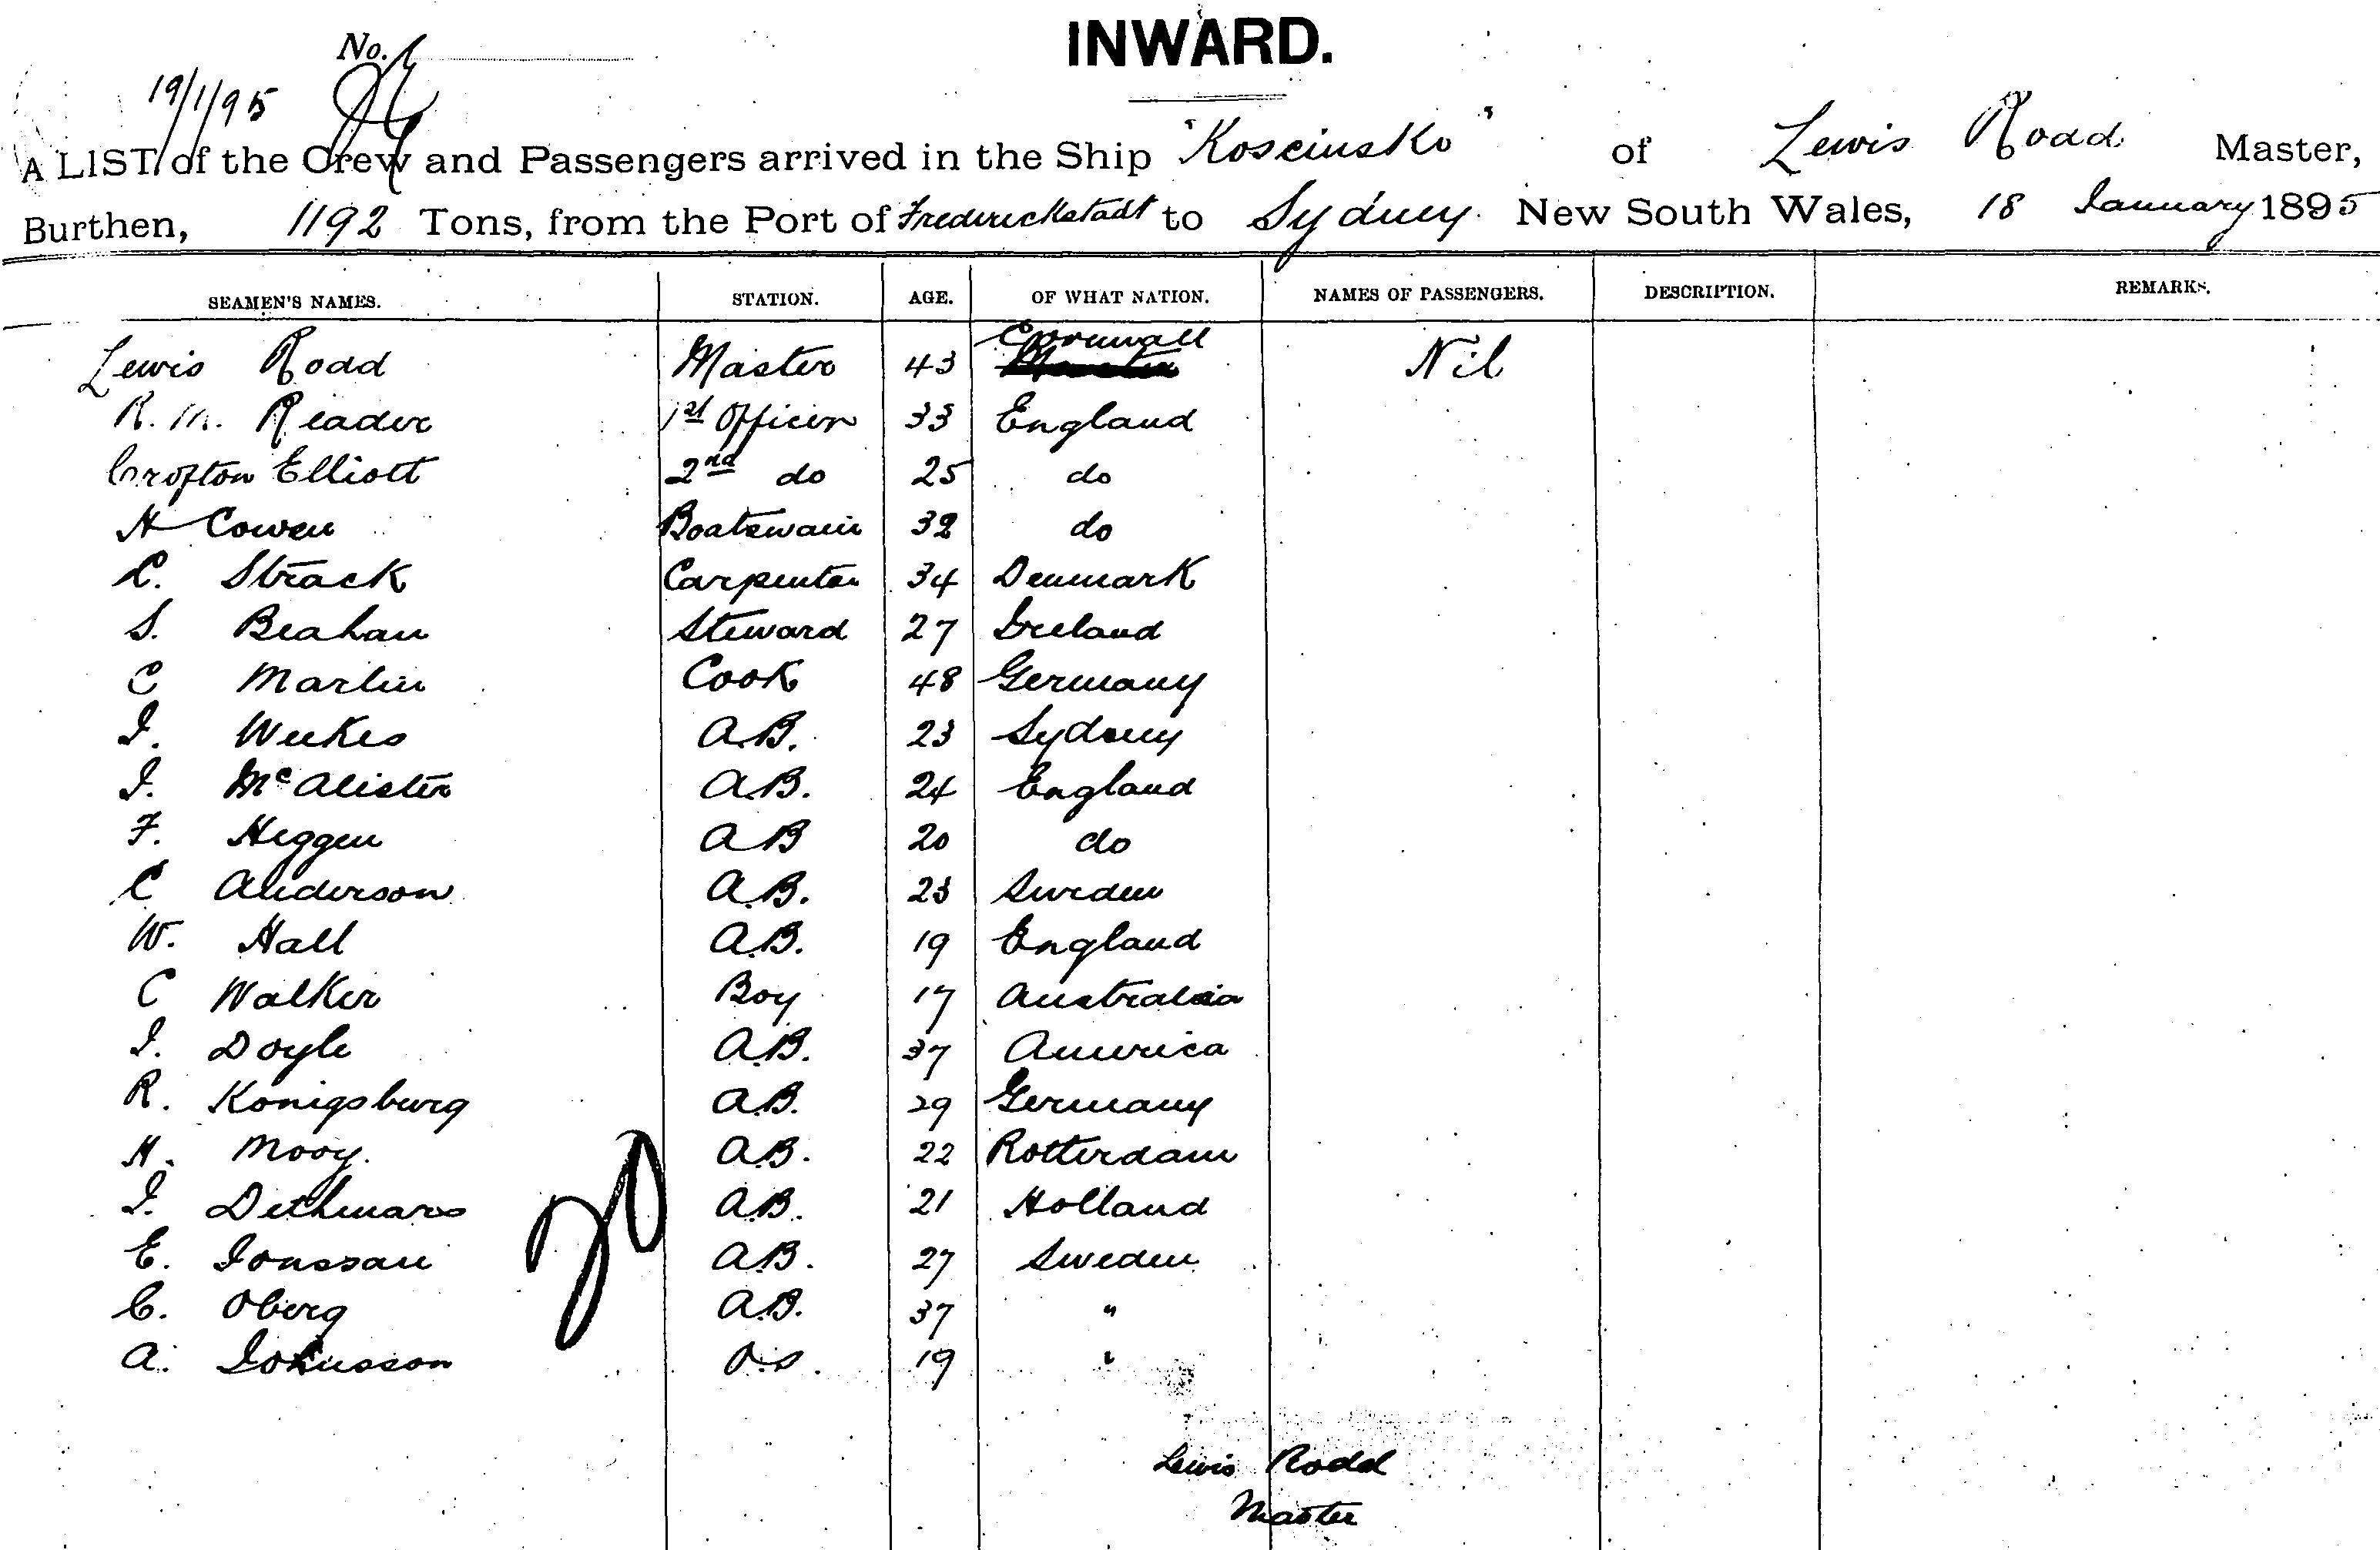 INWARD.
No.
19/1/95
A LIST of the Crew and Passengers arrived in the Ship "Kosciusko" of Lewis Rodd Master,
Burthen, 1192 Tons, from the Port of Frederickstadt to Sydney New South Wales, 18 January 1895
SEAMEN'S NAMES. STATION. AGE. OF WHAT NATION. NAMES OF PASSENGERS. DESCRIPTION. REMARKS.
Cornwall
Lewis Rodd Master 43 Nil
R. M. Reader 1st Officer 33 England
Crofton Elliott 2nd do 25 do
H Cowen Boatswain 32 do
C. Strack Carpenter 34 Denmark
S. Beahan Steward 27 Ireland
C Martin Cook 48 Germany
J. Weekes A.B. 23 Sydney
J. McAlister A.B. 24 England
F. Heggen A B 20 do
C Anderson A.B. 23 Sweden
W. Hall A.B. 19 England
C Walker Boy 17 Australia
J. Doyle A.B. 37 America
R. Konigsburg A.B. 29 Germany
H. Mooy. A.B. 22 Rotterdam
J. Dethmars A.B. 21 Holland
E. Jonssan A.B. 27 Sweden
C. Oberg A.B. 37 "
A. Johnsson O.S. 19 "
Lewis Rodd
Master